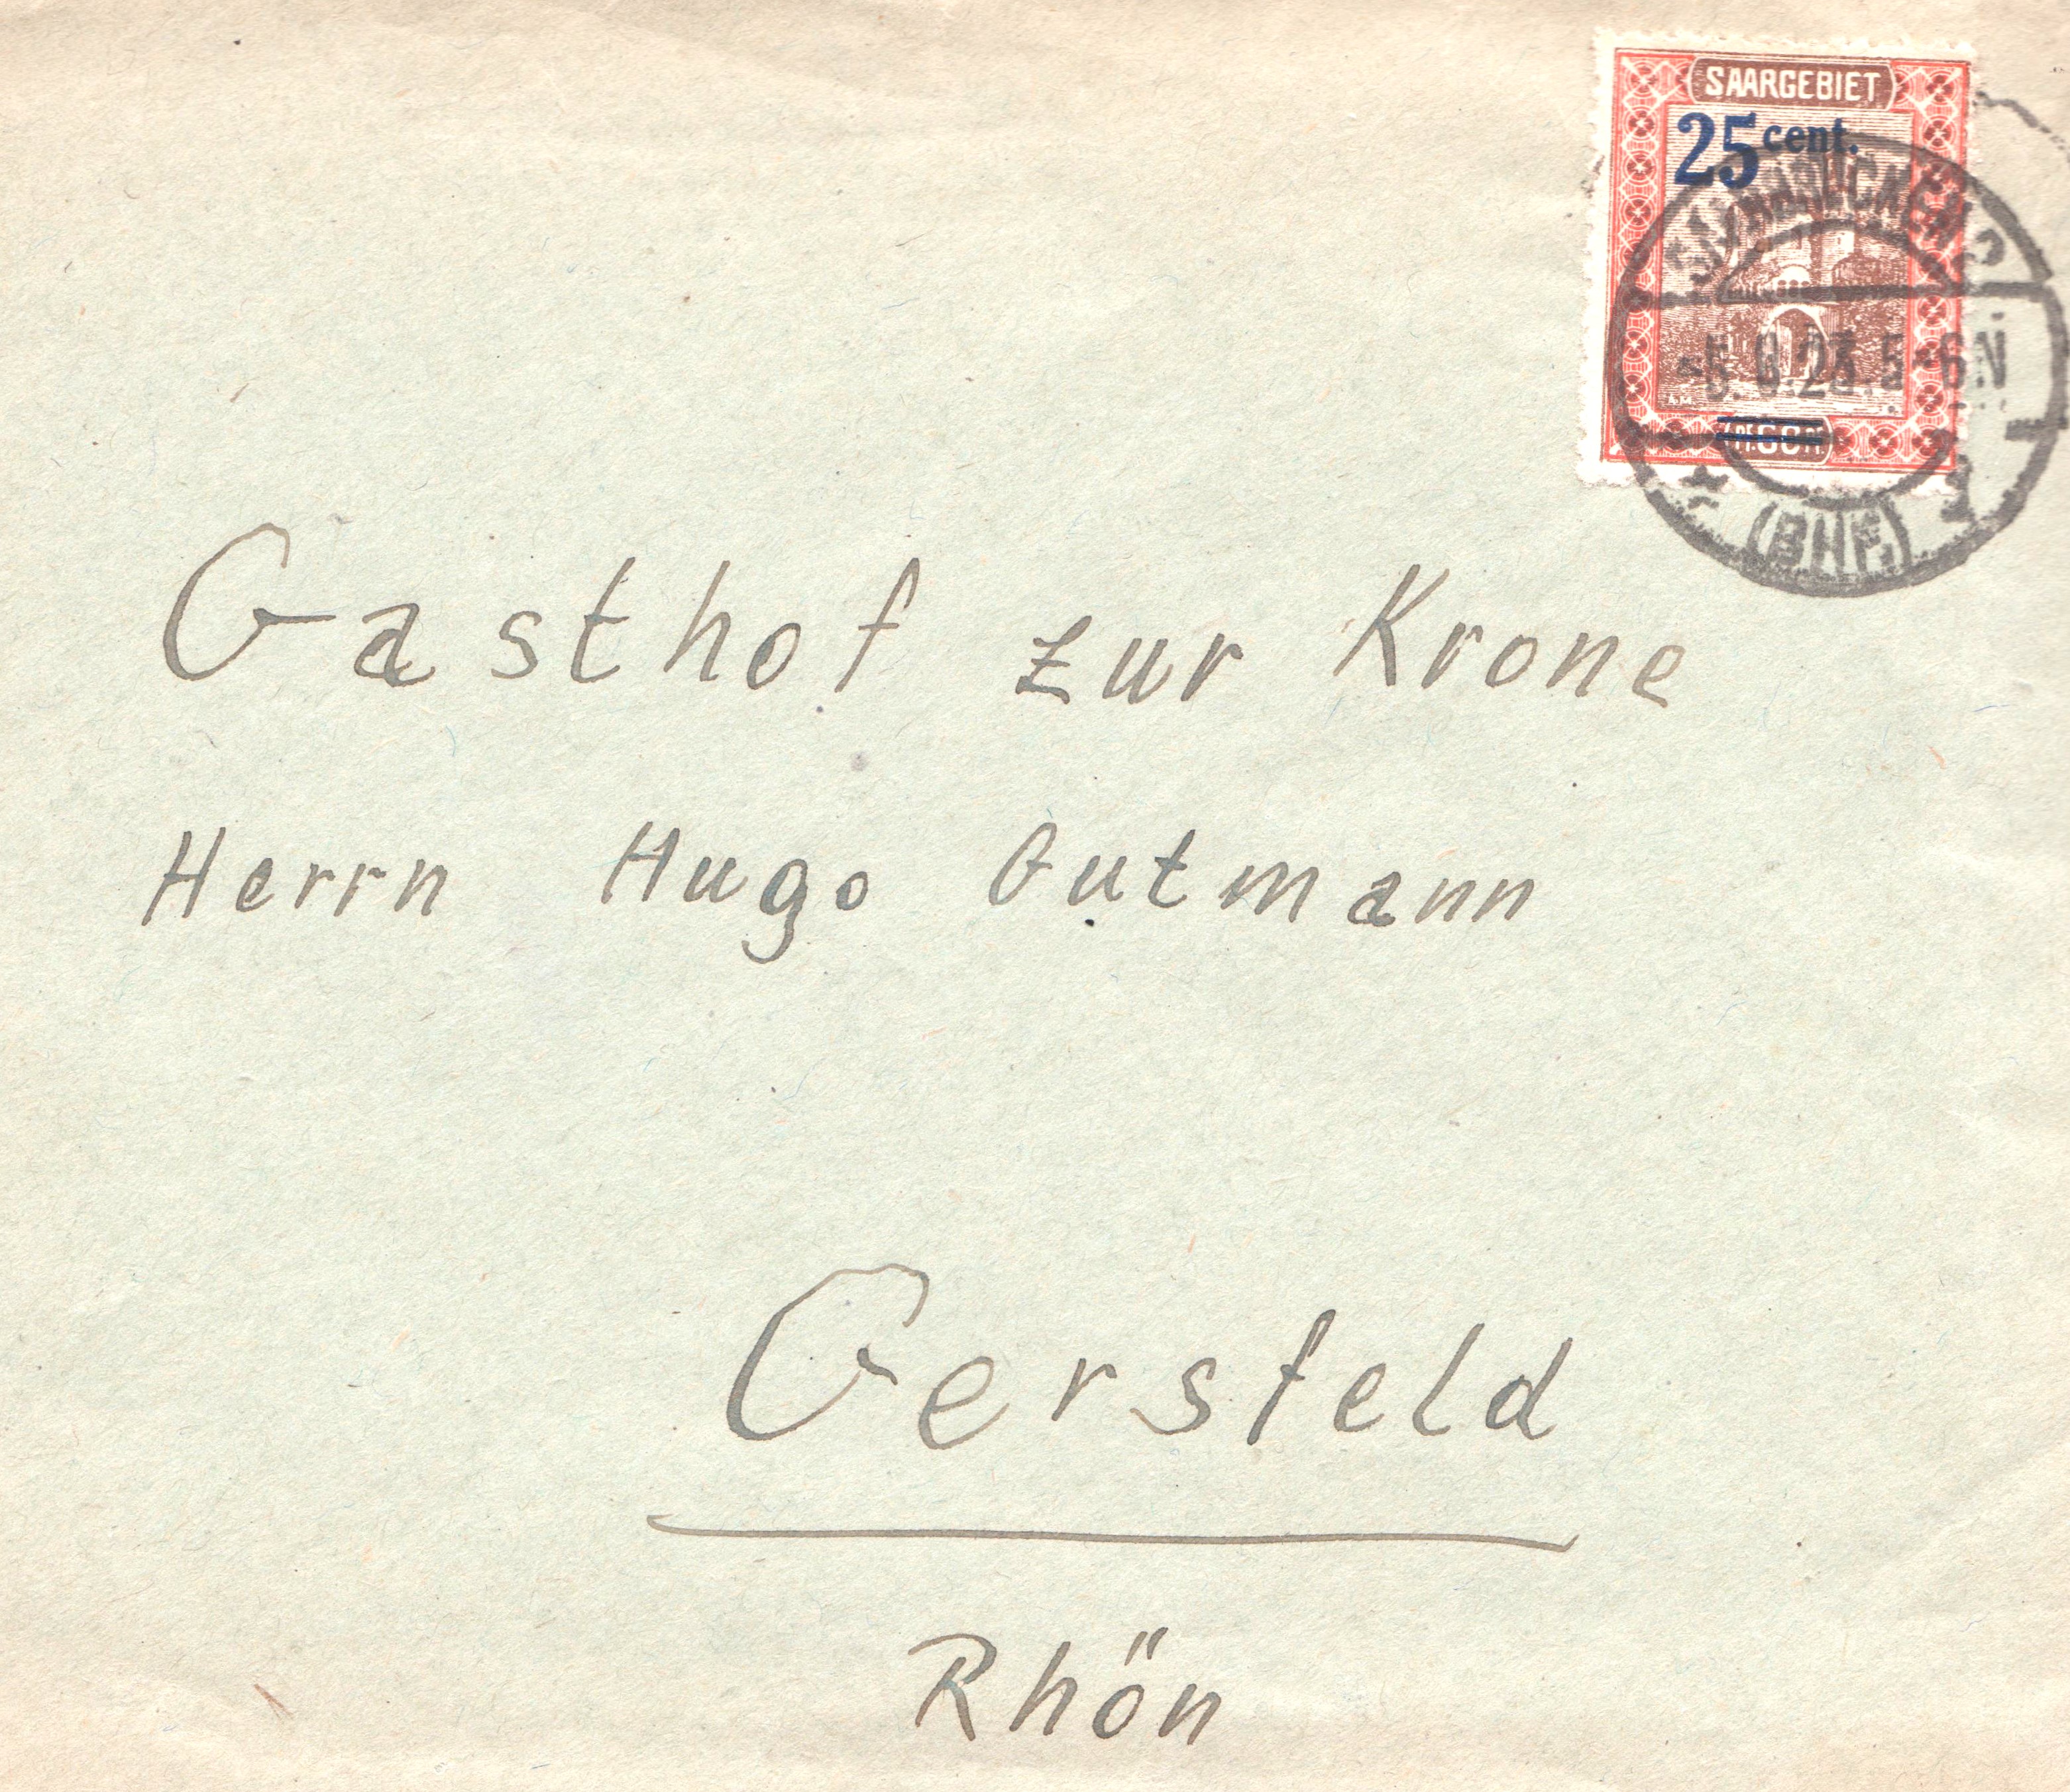 SAARGEBIET
25 cent.
SAARBRÜCKEN 3
5-6N
PF. 60 PF.
(BHF.)
Gasthof zur Krone
Herrn Hugo Gutmann
Gersfeld
Rhön